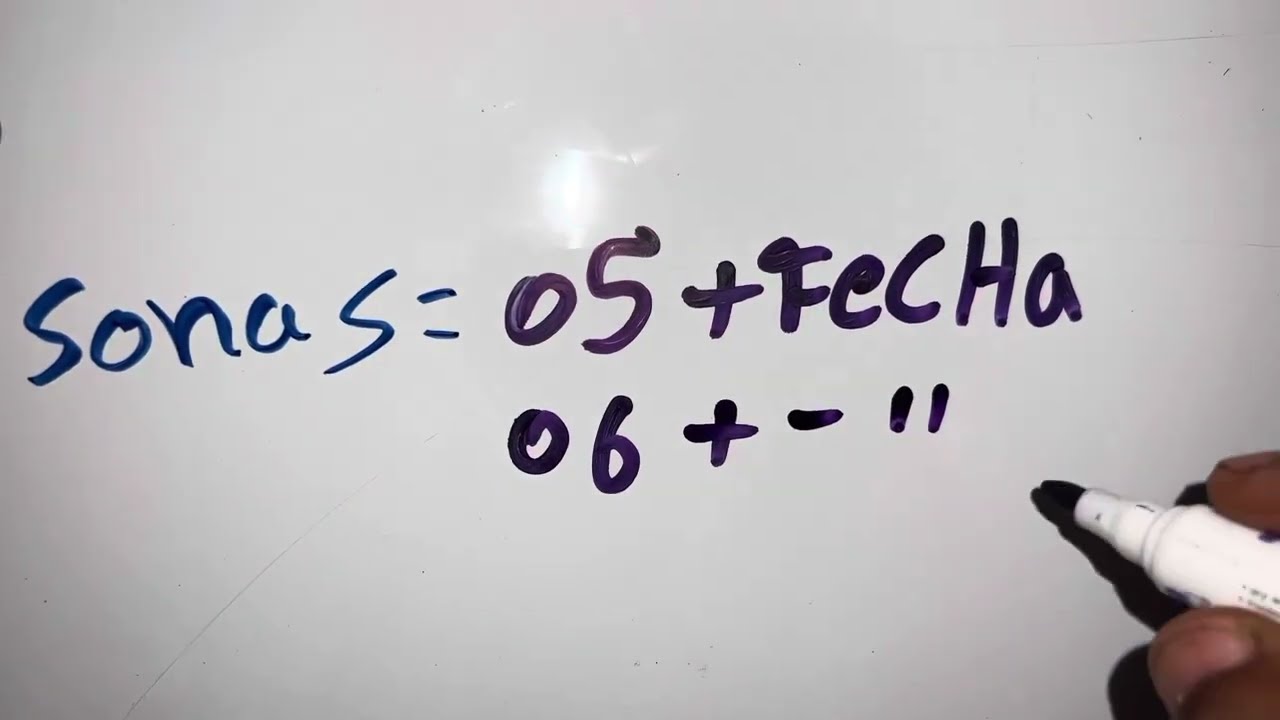 Sonas = 05 + FecHa
06 + - "